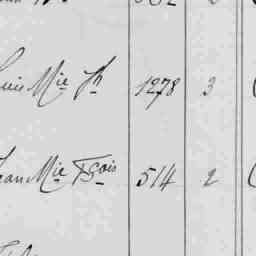 Louis Mie Jh 1278 3
Jean Mie Fçois 514 2